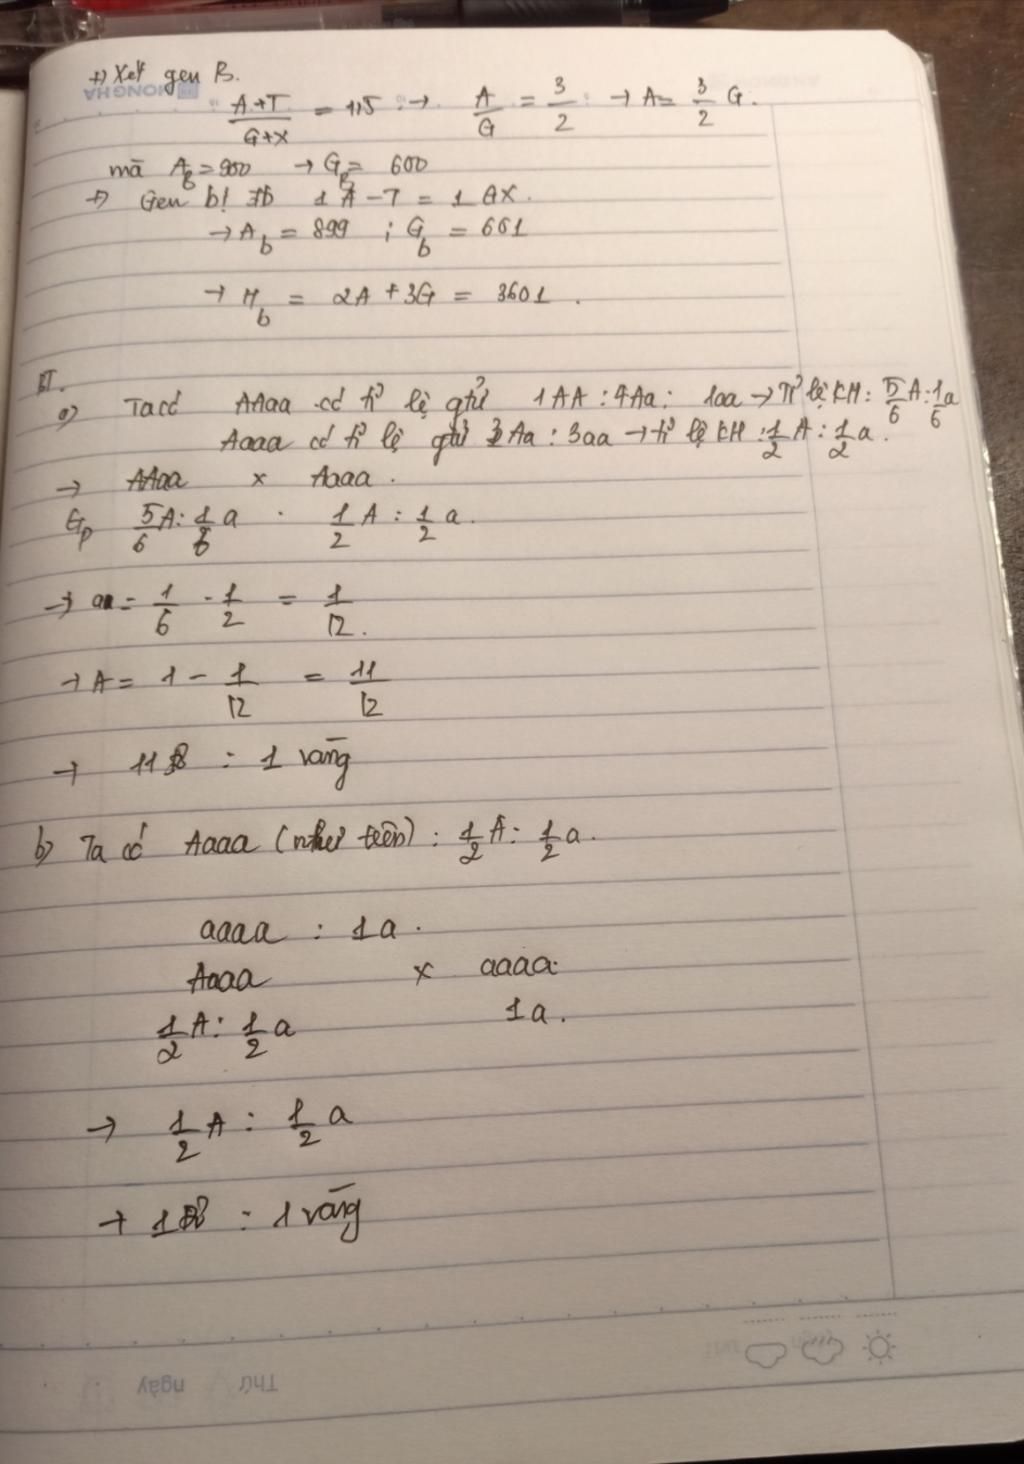 +) Xét gen B.
HONG HA
A+T / G+X = 1,5 → A/G = 3/2 → A = 3/2 G.
mà A_B = 900 → G_B = 600
+) Gen b! Tb 1 A-T = 1 GX.
→ A_b = 899 ; G_b = 601
→ H_b = 2A + 3G = 3601.
a) Ta có AAaa có tỉ lệ gtử 1AA : 4Aa : 1aa → Tỉ lệ KH : 5/6 A : 1/6 a
Aaaa có tỉ lệ gtử 3Aa : 3aa → tỉ lệ KH : 1/2 A : 1/2 a.
→ AAaa x Aaaa.
Gp 5/6 A : 1/6 a . 1/2 A : 1/2 a.
→ a = 1/6 . 1/2 = 1/12.
→ A = 1 - 1/12 = 11/12
→ 11 Đ : 1 vàng
b) Ta có Aaaa (như trên) : 1/2 A : 1/2 a.
aaaa : 1a.
Aaaa x aaaa.
1/2 A : 1/2 a 1a.
→ 1/2 A : 1/2 a
→ 1 Đ : 1 vàng
Thứ ngày